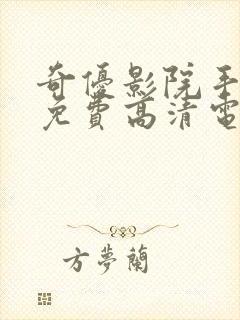 奇優影院手
免費高清電
方夢蘭